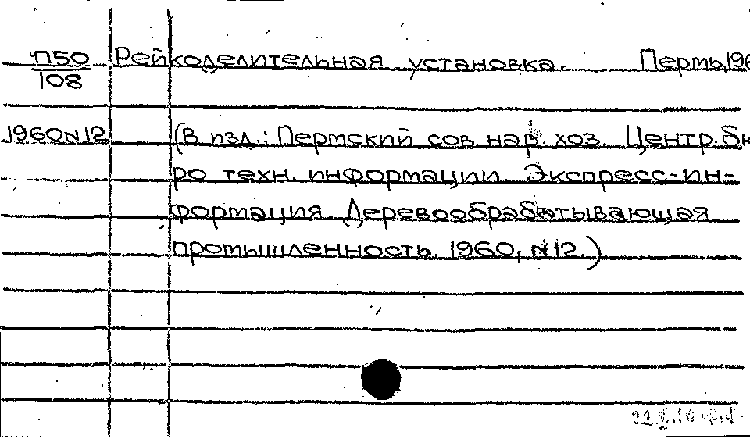 П50 Рейкоделительная установка. Пермь, 196
108
1960 N12 (В изд.: Пермский сов. нар. хоз. Центр. бю
ро техн. информации. Экспресс-ин-
формация. Деревообрабатывающая
промышленность. 1960, N12.)